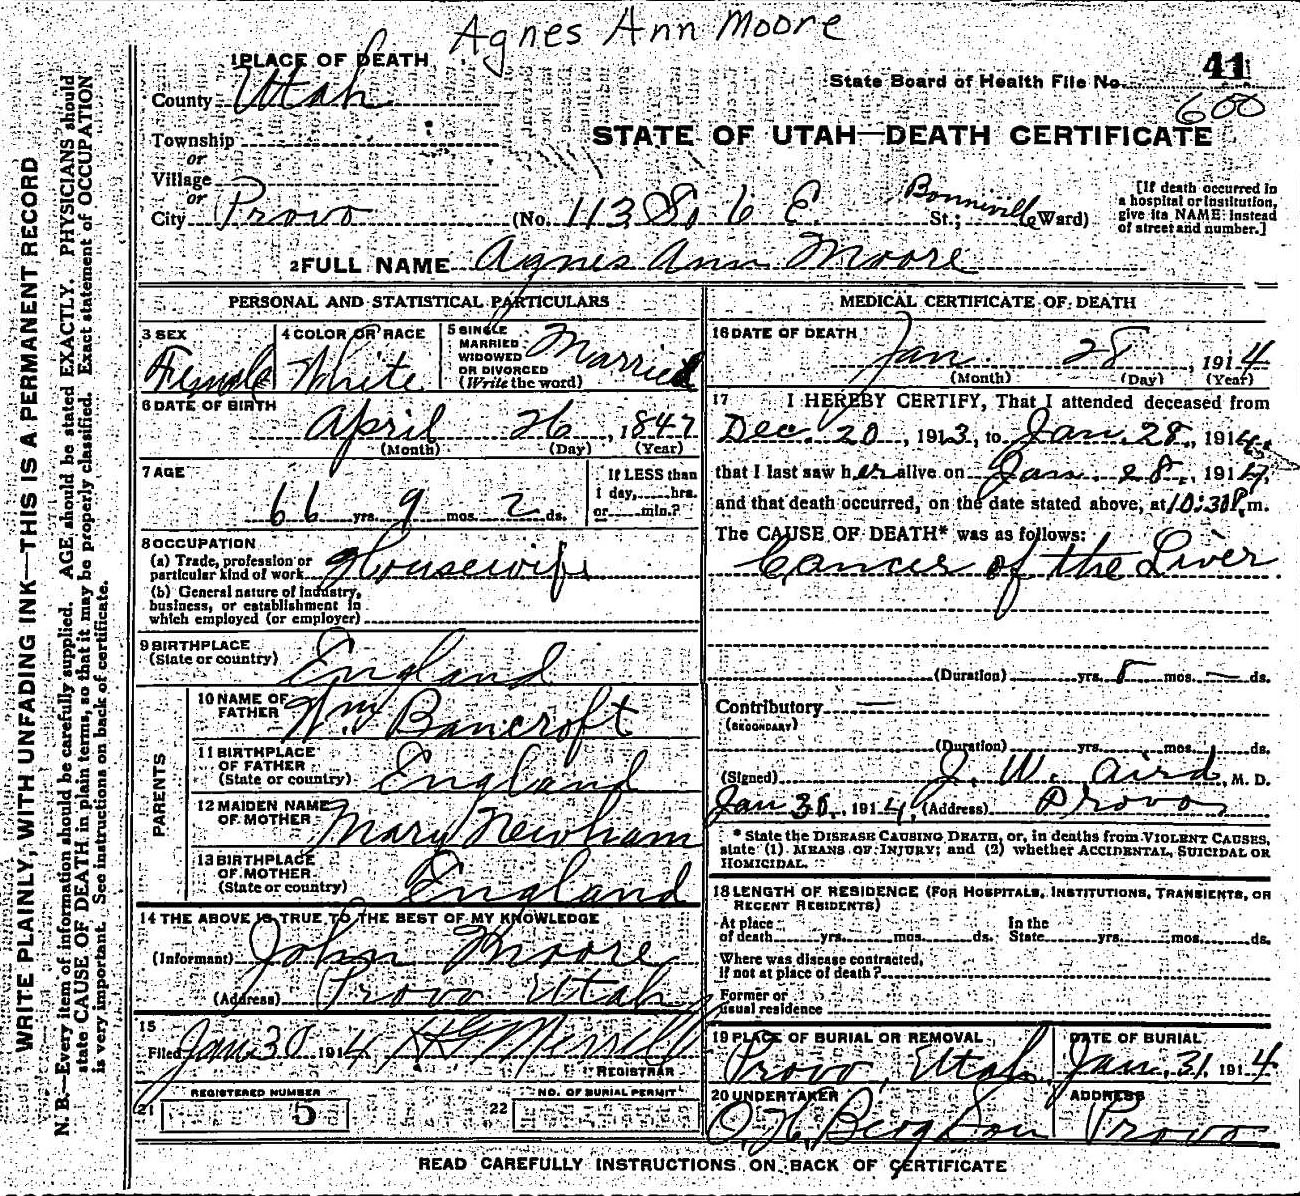 Agnes Ann Moore
1 PLACE OF DEATH
State Board of Health File No. 41
600
County Utah
STATE OF UTAH—DEATH CERTIFICATE
Township
or
Village
or
City Provo (No. 113 So 6 E. St.; Bonneville Ward)
[If death occurred in
a hospital or institution,
give its NAME instead
of street and number.]
2 FULL NAME Agnes Ann Moore
PERSONAL AND STATISTICAL PARTICULARS
3 SEX
Female
4 COLOR OR RACE
White
5 SINGLE
MARRIED
WIDOWED
OR DIVORCED
(Write the word)
Married
6 DATE OF BIRTH
April 26, 1847
(Month) (Day) (Year)
7 AGE
66 yrs. 9 mos. 2 ds.
If LESS than
1 day, hrs.
or min.?
8 OCCUPATION
(a) Trade, profession or
particular kind of work Housewife
(b) General nature of industry,
business, or establishment in
which employed (or employer)
9 BIRTHPLACE
(State or country) England
PARENTS
10 NAME OF
FATHER Wm Bancroft
11 BIRTHPLACE
OF FATHER
(State or country) England
12 MAIDEN NAME
OF MOTHER Mary Newham
13 BIRTHPLACE
OF MOTHER
(State or country) England
14 THE ABOVE IS TRUE TO THE BEST OF MY KNOWLEDGE
(Informant) John Moore
(Address) Provo Utah
15
Filed Jan 30 1914 Merrill
REGISTRAR
REGISTERED NUMBER
21 5
NO. OF BURIAL PERMIT
22
MEDICAL CERTIFICATE OF DEATH
16 DATE OF DEATH
Jan. 28, 1914
(Month) (Day) (Year)
17 I HEREBY CERTIFY, That I attended deceased from
Dec. 20, 1913, to Jan. 28, 1914,
that I last saw her alive on Jan. 28, 1914,
and that death occurred, on the date stated above, at 10:30P. m.
The CAUSE OF DEATH* was as follows:
Cancer of the Liver
(Duration) yrs. 8 mos. — ds.
Contributory —
(SECONDARY)
(Duration) yrs. mos. ds.
(Signed) J. W. Aird, M. D.
Jan 30, 1914, (Address) Provo
* State the DISEASE CAUSING DEATH, or, in deaths from VIOLENT CAUSES,
state (1) MEANS OF INJURY; and (2) whether ACCIDENTAL, SUICIDAL OR
HOMICIDAL.
18 LENGTH OF RESIDENCE (FOR HOSPITALS, INSTITUTIONS, TRANSIENTS, OR
RECENT RESIDENTS)
At place
of death yrs. mos. ds.
In the
State yrs. mos. ds.
Where was disease contracted,
if not at place of death?
Former or
usual residence
19 PLACE OF BURIAL OR REMOVAL
Provo, Utah
DATE OF BURIAL
Jan. 31, 1914
20 UNDERTAKER
O. H. Berg & Son
ADDRESS
Provo
READ CAREFULLY INSTRUCTIONS ON BACK OF CERTIFICATE
WRITE PLAINLY, WITH UNFADING INK—THIS IS A PERMANENT RECORD
N. B.—Every item of information should be carefully supplied. AGE should be stated EXACTLY. PHYSICIANS should
state CAUSE OF DEATH in plain terms, so that it may be properly classified. Exact statement of OCCUPATION
is very important. See instructions on back of certificate.